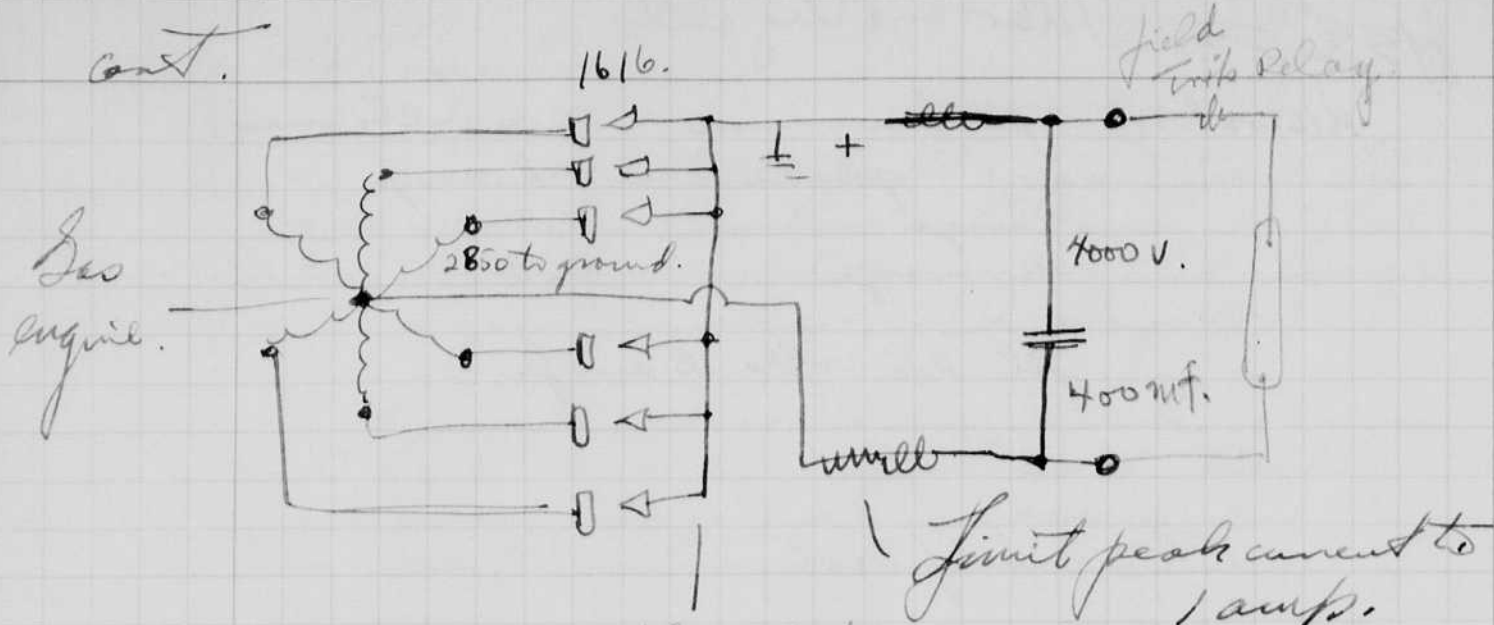 cont.
1616.
field
Trip Relay.
+
Gas
engine.
2850 to ground.
4000 v.
400 mf.
Limit peak current to
1 amp.